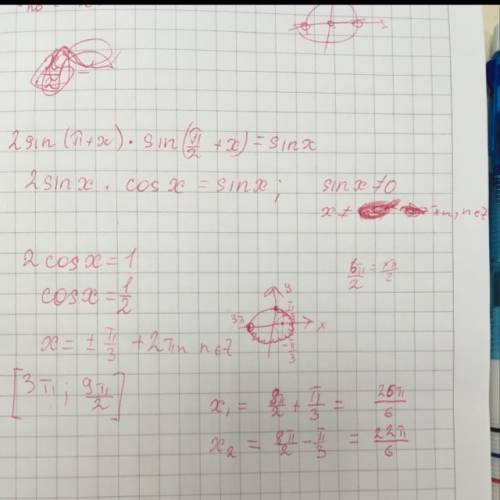 2sin(π+x)·sin(π/2+x)=sinx
2sinx·cosx=sinx; sinx≠0
x≠ πn, n∈Z
2cosx=1
6π/2=
cosx=1/2
y
3π x
x=±π/3+2πn n∈Z
-π/3
[3π; 9π/2]
x₁=8π/2+π/3=26π/6
x₂=8π/2-π/3=22π/6